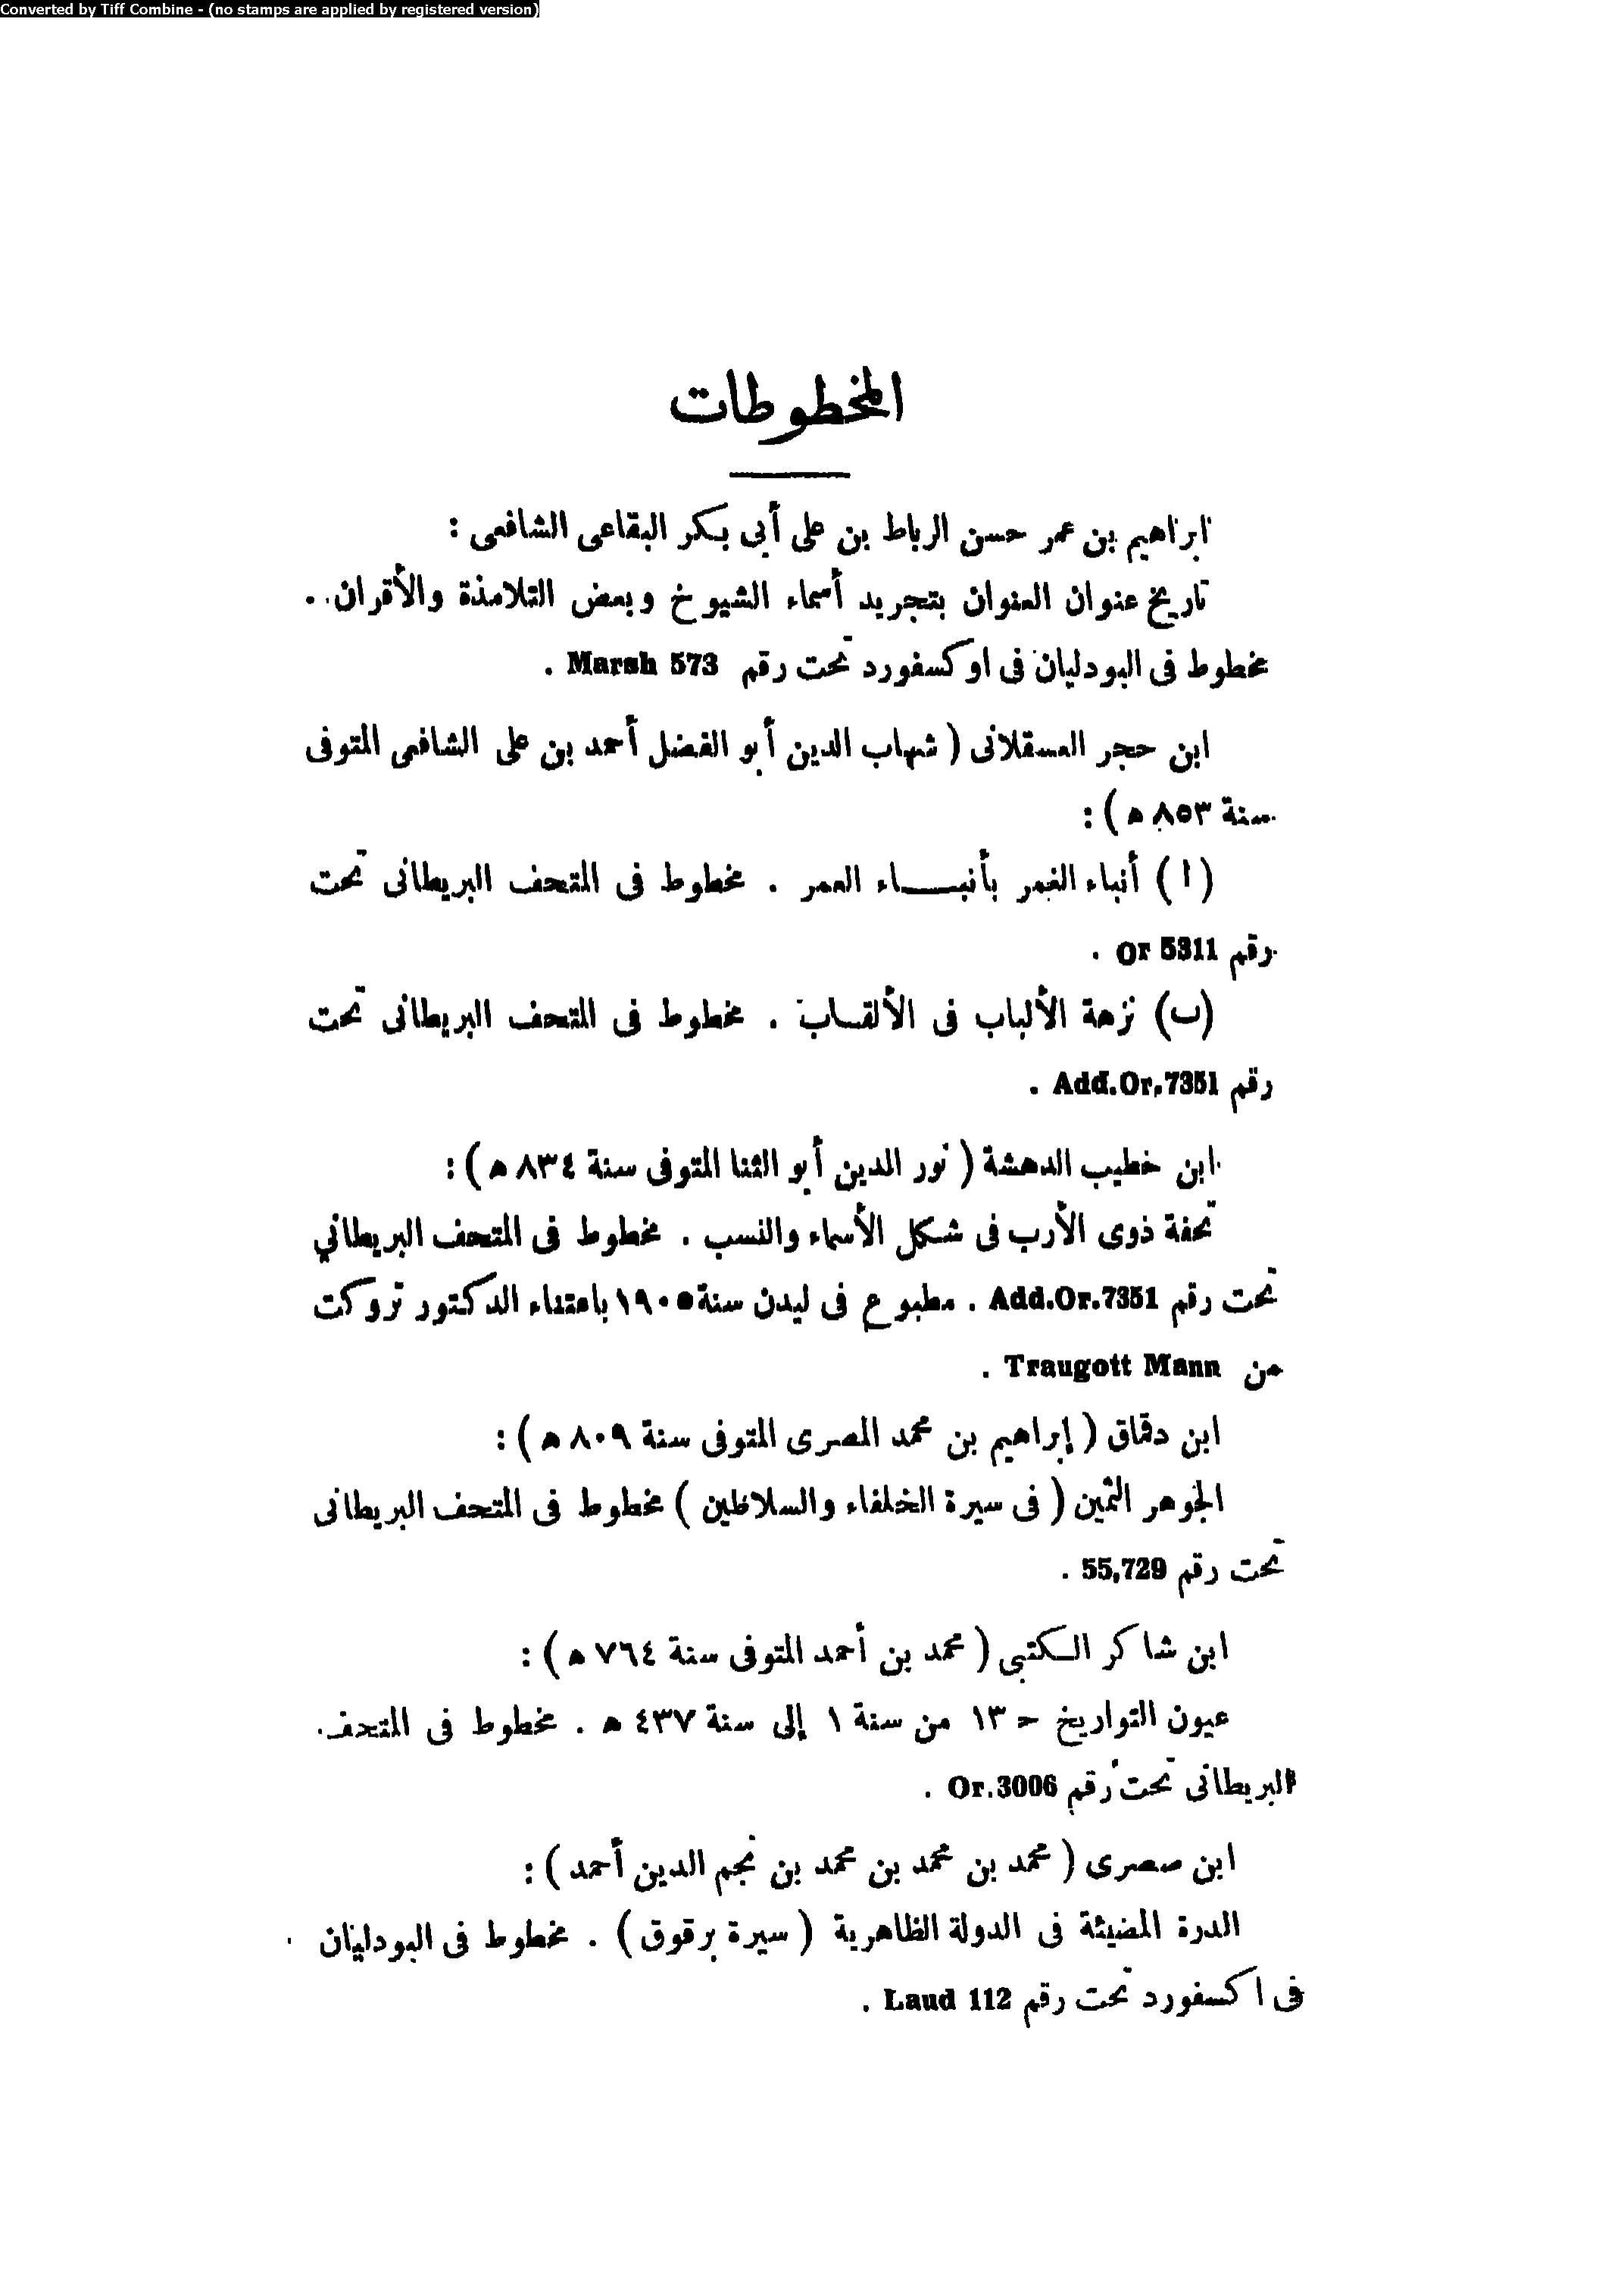 Converted by Tiff Combine - (no stamps are applied by registered version)
المخطوطات
ابراهيم بن عمر حسن الرباط بن على أبى بكر البقاعى الشافعى :
تاريخ عنوان العنوان بتجريد أسماء الشيوخ وبعض التلامذة والأقران .
مخطوط فى البودليان فى اوكسفورد تحت رقم Marsh 573 .
ابن حجر العسقلانى ( شهاب الدين أبو الفضل أحمد بن على الشافعى المتوفى
سنة ٨٥٣ ه ) :
( ا ) أنباء الغمر بأنبـــاء العمر . مخطوط فى المتحف البريطانى تحت
رقم Or 5311 .
(ب) نزهة الألباب فى الألقاب . مخطوط فى المتحف البريطانى تحت
رقم Add.Or.7351 .
ابن خطيب الدهشة ( نور الدين أبو الثنا المتوفى سنة ٨٣٤ ه ) :
تحفة ذوى الأرب فى شكل الأسماء والنسب . مخطوط فى المتحف البريطاني
تحت رقم Add.Or.7351 . مطبوع فى ليدن سنة ١٩٠٥ باعتناء الدكتور تروكت
من Traugott Mann .
ابن دقاق ( إبراهيم بن محمد المصرى المتوفى سنة ٨٠٩ ه ) :
الجوهر الثمين ( فى سيرة الخلفاء والسلاطين ) مخطوط فى المتحف البريطانى
تحت رقم 55,729 .
ابن شاكر الكتبى ( محمد بن أحمد المتوفى سنة ٧٦٤ ه ) :
عيون التواريخ ح ١٣ من سنة ١ إلى سنة ٤٣٧ ه . مخطوط فى المتحف
البريطانى تحت رقم Or.3006 .
ابن صصرى ( محمد بن محمد بن محمد بن نجم الدين أحمد ) :
الدرة المضيئة فى الدولة الظاهرية ( سيرة برقوق ) . مخطوط فى البودليان
فى اكسفورد تحت رقم Laud 112 .